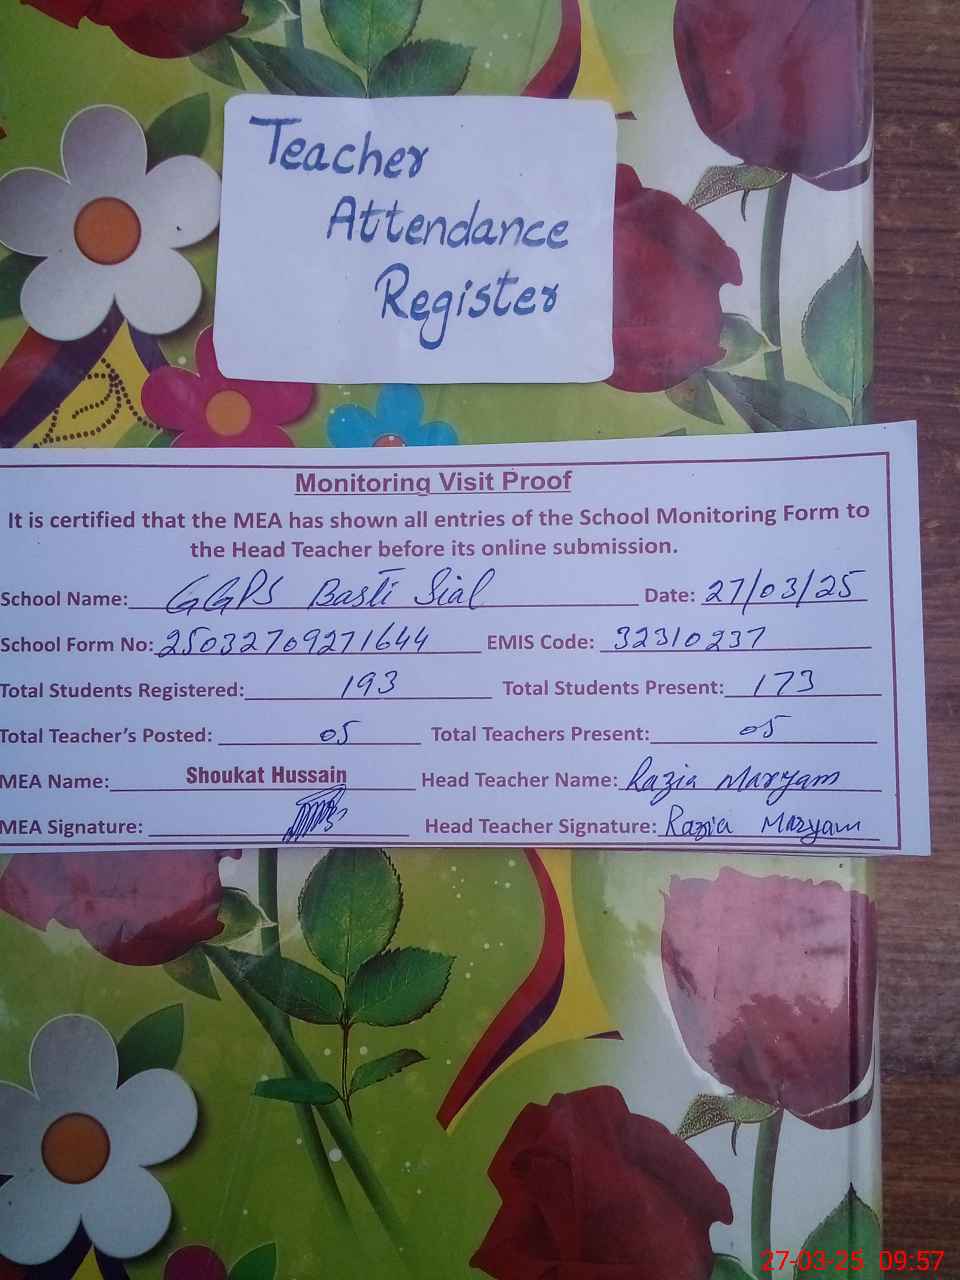 Teacher
Attendance
Register
Monitoring Visit Proof
It is certified that the MEA has shown all entries of the School Monitoring Form to
the Head Teacher before its online submission.
School Name: GGPS Basti Sial Date: 27/03/25
School Form No: 25032709271644 EMIS Code: 32310237
Total Students Registered: 193 Total Students Present: 173
Total Teacher's Posted: 05 Total Teachers Present: 05
MEA Name: Shoukat Hussain Head Teacher Name: Razia Maryam
MEA Signature: Head Teacher Signature: Razia Maryam
27-03-25 09:57